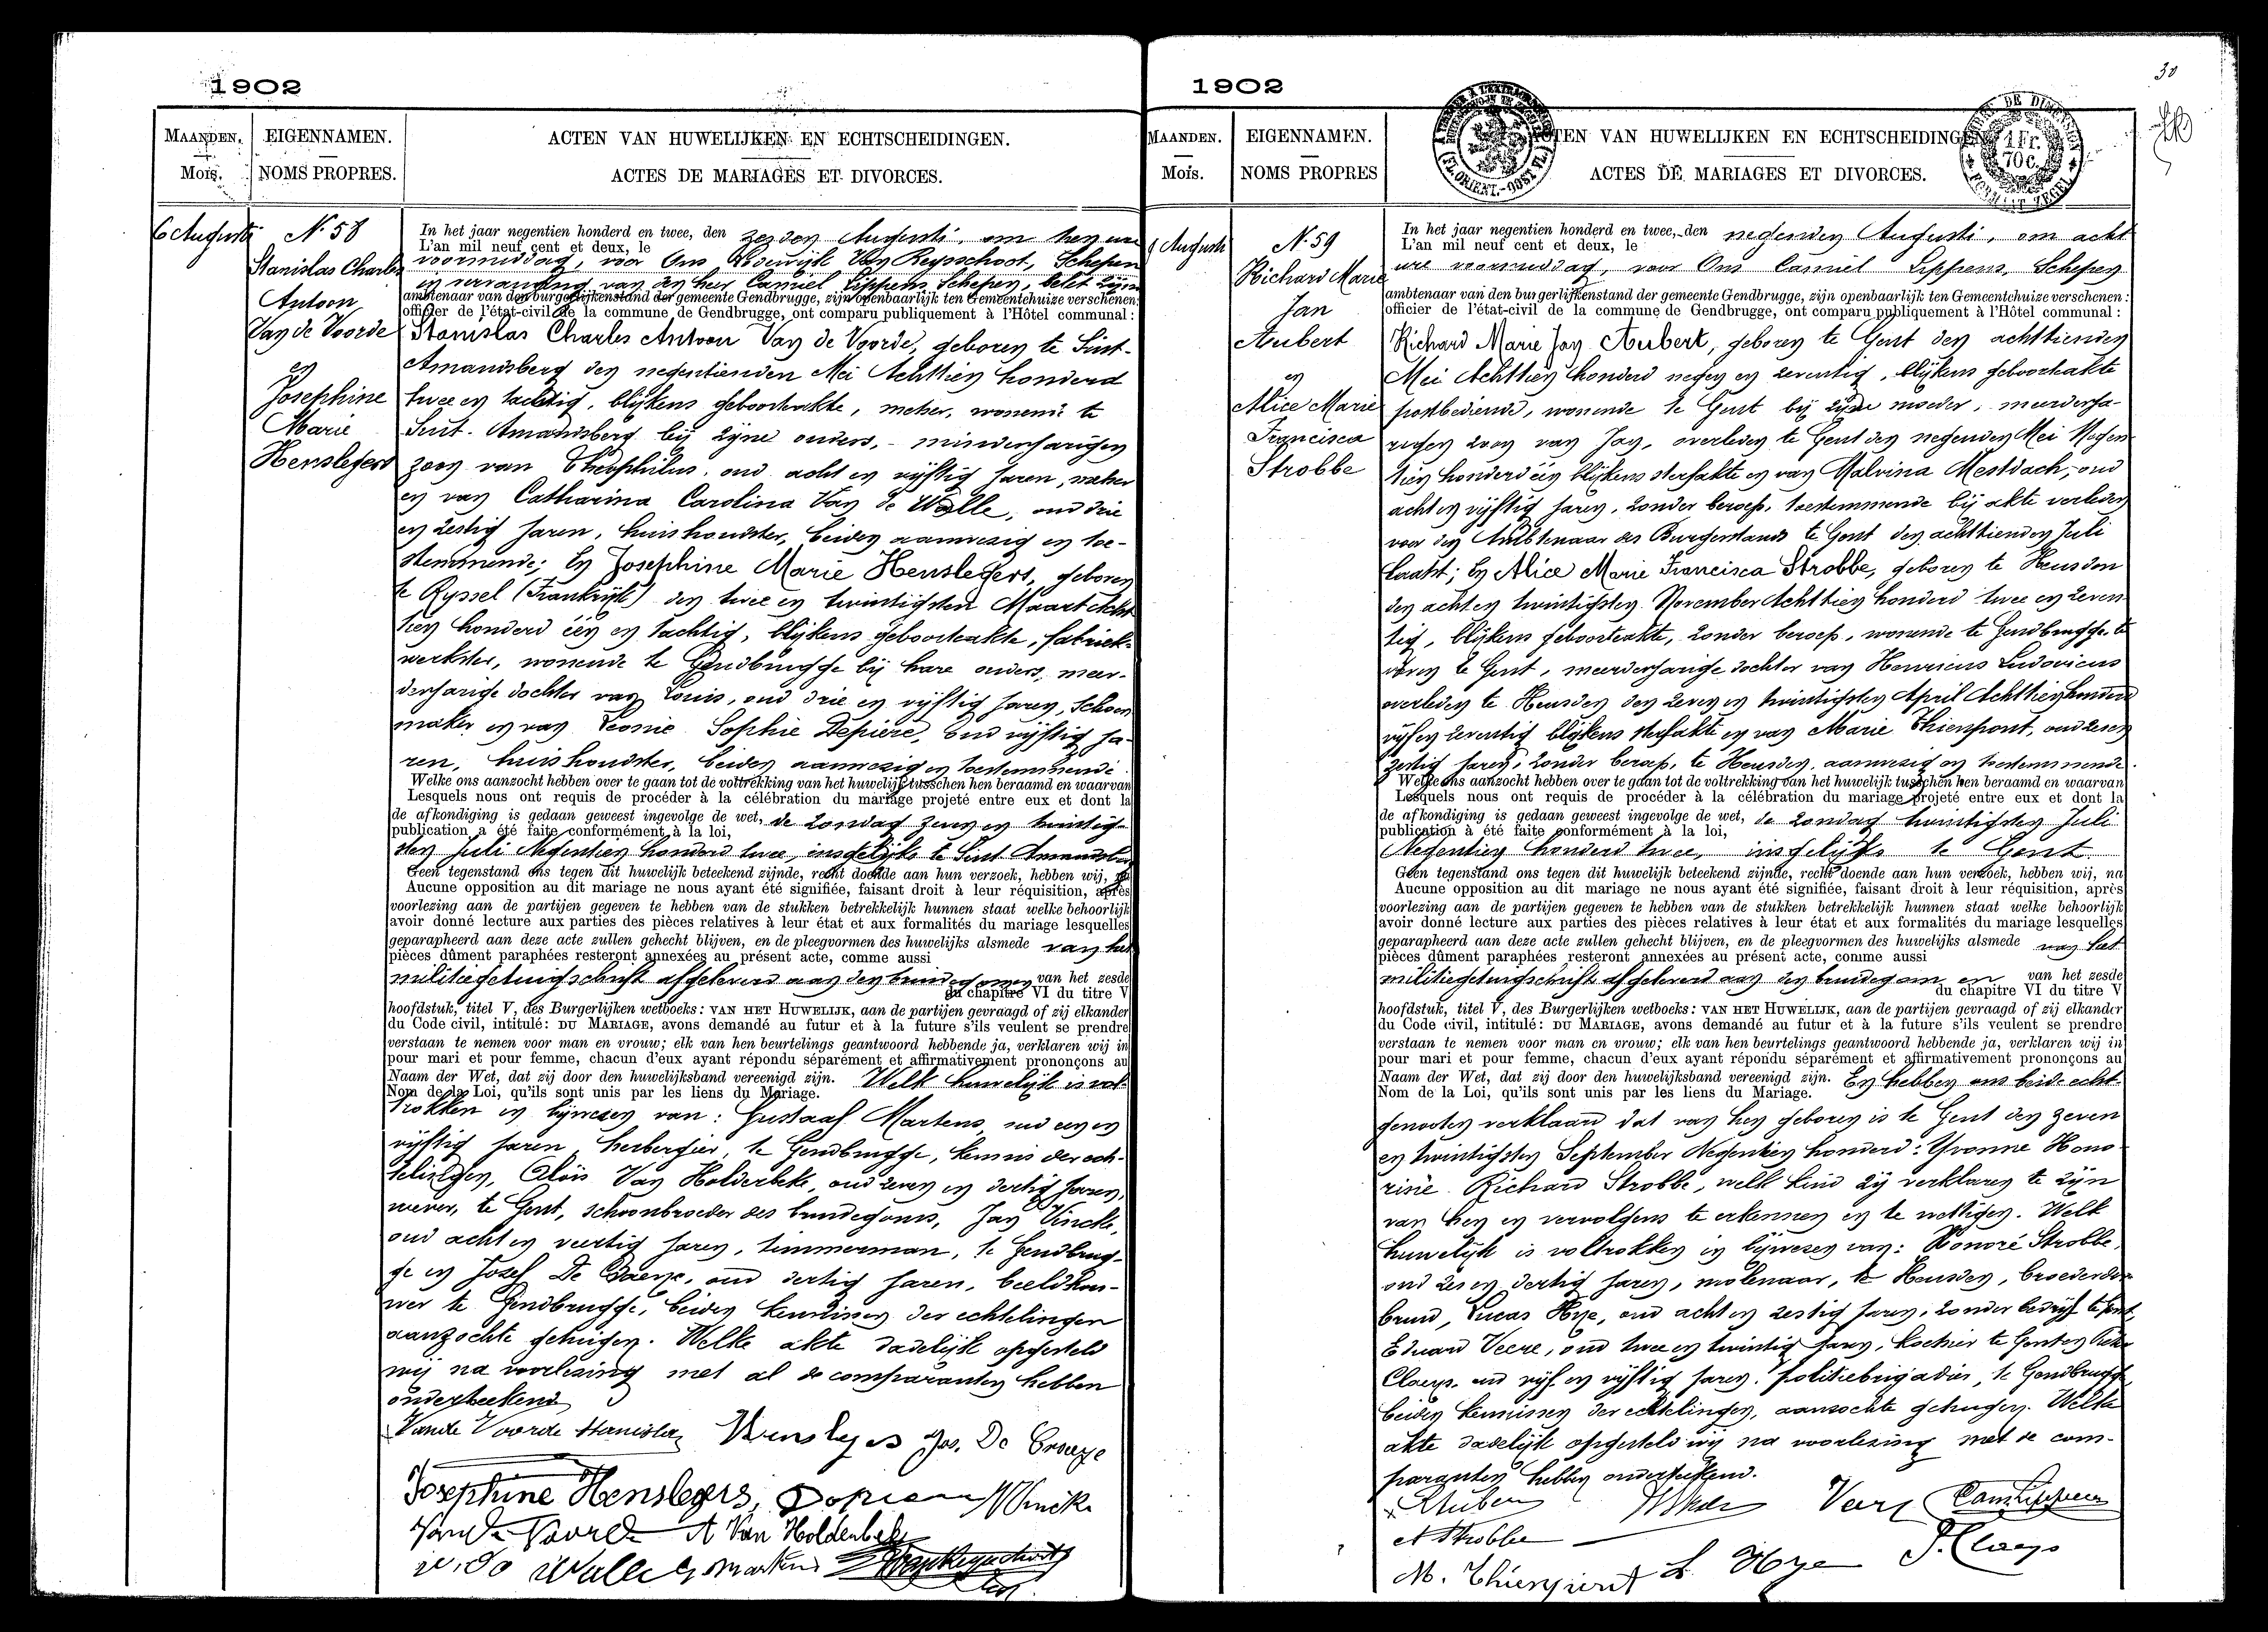 1902
MAANDEN.
Mois.
EIGENNAMEN.
NOMS PROPRES.
ACTEN VAN HUWELIJKEN EN ECHTSCHEIDINGEN.
ACTES DE MARIAGES ET DIVORCES.
6 Augusti
N. 58
Stanislas Charles
Antoon
Van de Voorde
en
Josephine
Marie
Henslegers
In het jaar negentien honderd en twee, den zesden Augusti, om tien ure
L'an mil neuf cent et deux, le
voormiddag, voor Ons Lodewijk Van Reysschoot, Schepen
in vervanging van den heer Camiel Lippens Schepen, belet zijnde
ambtenaar van den burgerlijkenstand der gemeente Gendbrugge, zijn openbaarlijk ten Gemeentehuize verschenen:
officier de l'état-civil de la commune de Gendbrugge, ont comparu publiquement à l'Hôtel communal:
Stanislas Charles Antoon Van de Voorde, geboren te Sint-
Amandsberg den negentienden Mei Achttien honderd
twee en tachtig, blijkens geboorteakte, metser, wonende te
Sint-Amandsberg bij zijne ouders, - minderjarigen
zoon van Theophilus, oud acht en vijftig jaren,
en van Catharina Carolina Van de Walle, oud drie
en zestig jaren, huishoudster, beiden aanwezig en toe-
stemmende; En Josephine Marie Henslegers, geboren
te Ryssel (Frankrijk) den twee en twintigsten Maart Acht
tien honderd één en tachtig, blijkens geboorteakte, fabriek-
werkster, wonende te Gendbrugge bij hare ouders, meer-
derjarige dochter van Louis, oud drie en vijftig jaren, schoen
maker en van Leonie Sophie Depière, oud vijftig ja-
ren, huishoudster, beiden aanwezig en toestemmende
Welke ons aanzocht hebben over te gaan tot de voltrekking van het huwelijk tusschen hen beraamd en waarvan
Lesquels nous ont requis de procéder à la célébration du mariage projeté entre eux et dont la
de afkondiging is gedaan geweest ingevolge de wet, de zondag zeven en twintig-
publication a été faite conformément à la loi,
sten Juli Negentien honderd twee, insgelijks te Sint Amandsberg
Geen tegenstand ons tegen dit huwelijk beteekend zijnde, recht doende aan hun verzoek, hebben wij, na
Aucune opposition au dit mariage ne nous ayant été signifiée, faisant droit à leur réquisition, après
voorlezing aan de partijen gegeven te hebben van de stukken betrekkelijk hunnen staat welke behoorlijk
avoir donné lecture aux parties des pièces relatives à leur état et aux formalités du mariage lesquelles
geparapheerd aan deze acte zullen gehecht blijven, en de pleegvormen des huwelijks alsmede van het
pièces dûment paraphées resteront annexées au présent acte, comme aussi
militiegetuigschrift afgeleverd aan den bruidegom en van het zesde
du chapitre VI du titre V
hoofdstuk, titel V, des Burgerlijken wetboeks: VAN HET HUWELIJK, aan de partijen gevraagd of zij elkander
du Code civil, intitulé: DU MARIAGE, avons demandé au futur et à la future s'ils veulent se prendre
verstaan te nemen voor man en vrouw; elk van hen beurtelings geantwoord hebbende ja, verklaren wij in
pour mari et pour femme, chacun d'eux ayant répondu séparément et affirmativement prononçons au
Naam der Wet, dat zij door den huwelijksband vereenigd zijn. Welk huwelijk is vol-
Nom de la Loi, qu'ils sont unis par les liens du Mariage.
trokken in bijwezen van: Gustaaf Martens, oud een en
vijftig jaren, herbergier, te Gendbrugge, kennis der ech-
telingen, Aloïs Van Holderbeke, oud zeven en dertig jaren,
wever, te Gent, schoonbroeder des bruidegoms, Jan Vincke,
oud acht en veertig jaren, timmerman, te Gendbrug-
ge en Josef De, oud dertig jaren, beeldhou-
wer te Gendbrugge, beiden kennissen der echtelingen
aanzochte getuigen. Welke akte dadelijk opgesteld
wij na voorlezing met al de comparanten hebben
onderteekend
Van de Voorde Stanislas Henslegers Jos. De
Josephine Henslegers, Depiere J Vincke
Van de Voorde A Van Holderbeke
v. de Walle G Martens
1902
30
MAANDEN.
Mois.
EIGENNAMEN.
NOMS PROPRES
ACTEN VAN HUWELIJKEN EN ECHTSCHEIDINGEN
ACTES DE MARIAGES ET DIVORCES.
1 Fr.
70 c.
9 Augusti
N. 59
Richard Marie
Jan
Aubert
en
Alice Marie
Francisca
Strobbe
In het jaar negentien honderd en twee, den negenden Augusti, om acht
L'an mil neuf cent et deux, le
ure voormiddag, voor Ons Camiel Lippens, Schepen
ambtenaar van den burgerlijkenstand der gemeente Gendbrugge, zijn openbaarlijk ten Gemeentehuize verschenen:
officier de l'état-civil de la commune de Gendbrugge, ont comparu publiquement à l'Hôtel communal:
Richard Marie Jan Aubert, geboren te Gent den achttienden
Mei Achttien honderd negen en zeventig, blijkens geboorteakte
postbediende, wonende te Gent bij zijne moeder, meerderja-
rigen zoon van Jan, overleden te Gent den negenden Mei Negen
tien honderd één blijkens sterfakte en van Malvina Mestdach, oud
acht en vijftig jaren, zonder beroep, toestemmende bij akte verleden
voor den Ambtenaar des Burgerstands te Gent den achttienden Juli
laatst; En Alice Marie Francisca Strobbe, geboren te Heusden
den acht en twintigsten November Achttien honderd twee en zeven
tig, blijkens geboorteakte, zonder beroep, wonende te Gendbrugge, te
voren te Gent, meerderjarige dochter van Henricus Ludovicus
overleden te Heusden den zeven en twintigsten April Achttien honderd
vijf en zeventig blijkens sterfakte en van Marie Thienpont, oud zes en
zestig jaren, zonder beroep, te Heusden, aanwezig en toestemmende.
Welke ons aanzocht hebben over te gaan tot de voltrekking van het huwelijk tusschen hen beraamd en waarvan
Lesquels nous ont requis de procéder à la célébration du mariage projeté entre eux et dont la
de afkondiging is gedaan geweest ingevolge de wet, de zondag twintigsten Juli
publication a été faite conformément à la loi,
Negentien honderd twee, insgelijks te Gent
Geen tegenstand ons tegen dit huwelijk beteekend zijnde, recht doende aan hun verzoek, hebben wij, na
Aucune opposition au dit mariage ne nous ayant été signifiée, faisant droit à leur réquisition, après
voorlezing aan de partijen gegeven te hebben van de stukken betrekkelijk hunnen staat welke behoorlijk
avoir donné lecture aux parties des pièces relatives à leur état et aux formalités du mariage lesquelles
geparapheerd aan deze acte zullen gehecht blijven, en de pleegvormen des huwelijks alsmede van het
pièces dûment paraphées resteront annexées au présent acte, comme aussi
militiegetuigschrift afgeleverd aan den bruidegom en van het zesde
du chapitre VI du titre V
hoofdstuk, titel V, des Burgerlijken wetboeks: VAN HET HUWELIJK, aan de partijen gevraagd of zij elkander
du Code civil, intitulé: DU MARIAGE, avons demandé au futur et à la future s'ils veulent se prendre
verstaan te nemen voor man en vrouw; elk van hen beurtelings geantwoord hebbende ja, verklaren wij in
pour mari et pour femme, chacun d'eux ayant répondu séparément et affirmativement prononçons au
Naam der Wet, dat zij door den huwelijksband vereenigd zijn. En hebben ons beide echt-
Nom de la Loi, qu'ils sont unis par les liens du Mariage.
genooten verklaard dat van hen geboren is te Gent den zeven
en twintigsten September Negentien honderd: Yvonne Hono
rine Richard Strobbe, welk kind zij verklaren te zijn
van hen en vervolgens te erkennen en te wettigen. Welk
huwelijk is voltrokken in bijwezen van: Honoré Strobbe,
oud zes en dertig jaren, molenaar, te Heusden, broeder der
bruid, Lucas Hye, oud acht en zestig jaren, zonder bedrijf te Gent,
Eduard Veere, oud twee en twintig jaren, te Gent en
Claeys, oud vijf en vijftig jaren, politiebrigadier, te Gendbrugge
beiden kennissen der echtelingen, aanzochte getuigen. Welke
akte dadelijk opgesteld wij na voorlezing met de com-
paranten hebben onderteekend.
R Aubert Cam Lippens
A Strobbe
M. Thienpont L Hye P. Claeys